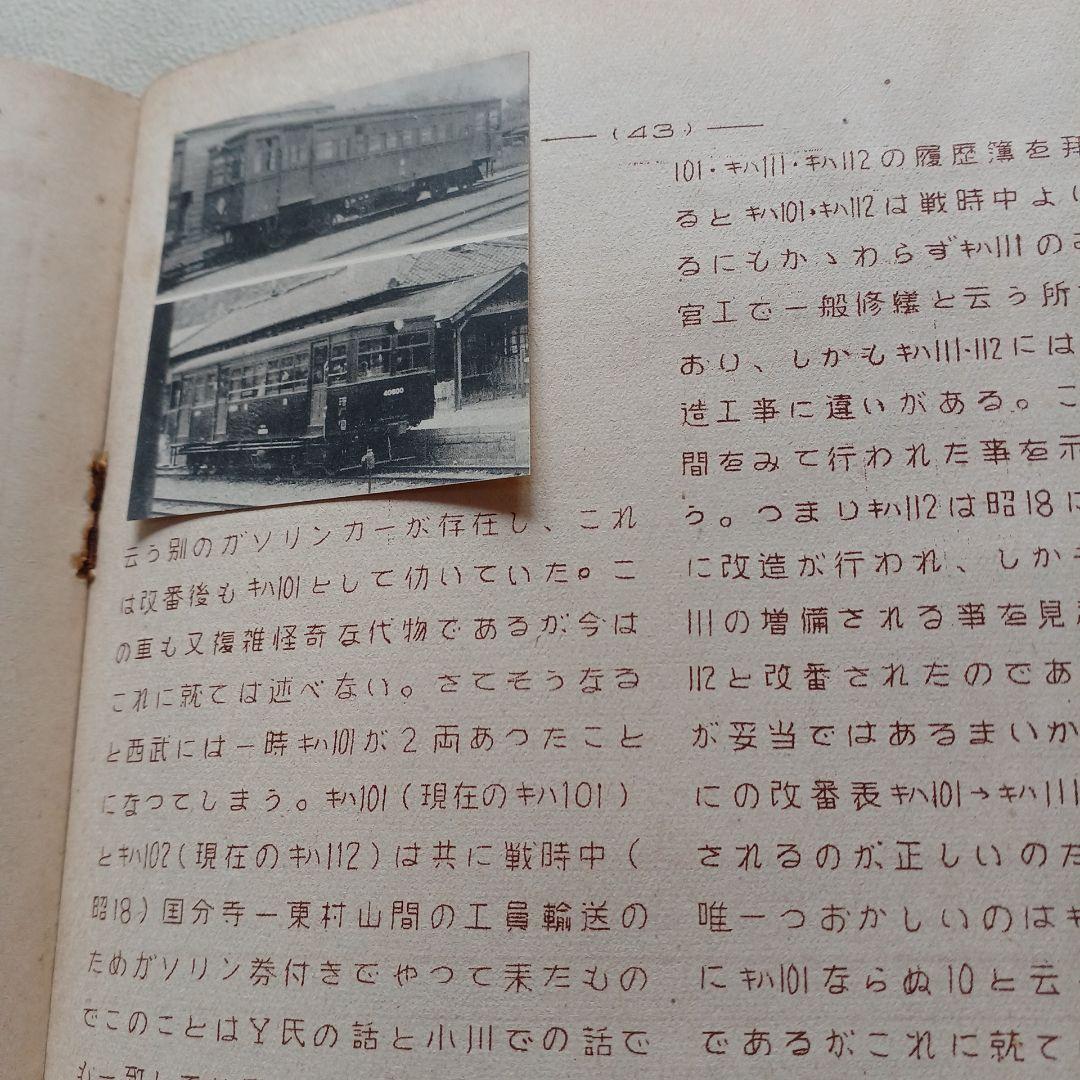 (43)
40600
云う別のガソリンカーが存在し、これ
は改番後もキハ101として仂いていた。こ
の車も又複雑怪奇な代物であるが今は
これに就ては述べない。さてそうなる
と西武には一時キハ101が2両あつたこと
になつてしまう。キハ101(現在のキハ101)
とキハ102(現在のキハ112)は共に戦時中(
昭18)国分寺ー東村山間の工員輸送の
ためガソリン券付きでやつて来たもの
でこのことはY氏の話と小川での話で
101・キハ111・キハ112の履歴簿を拜
るとキハ101・キハ112は戦時中よ
るにもかゝわらずキハ111の
宮工で一般修繕と云う所
おり、しかもキハ111・112には
造工事に違いがある。こ
間をみて行われた事を示
う。つまりキハ112は昭18に
に改造が行われ、しかも
111の増備される事を見
112と改番されたのであ
が妥当ではあるまいか
にの改番表キハ101→キハ111
されるのが正しいのだ
唯一つおかしいのはキ
にキハ101ならぬ10と云
であるがこれに就て